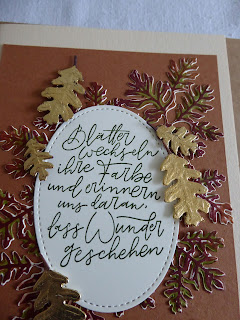 Blätter
wechseln
ihre Farbe
und erinnern
uns daran,
dass Wunder
geschehen